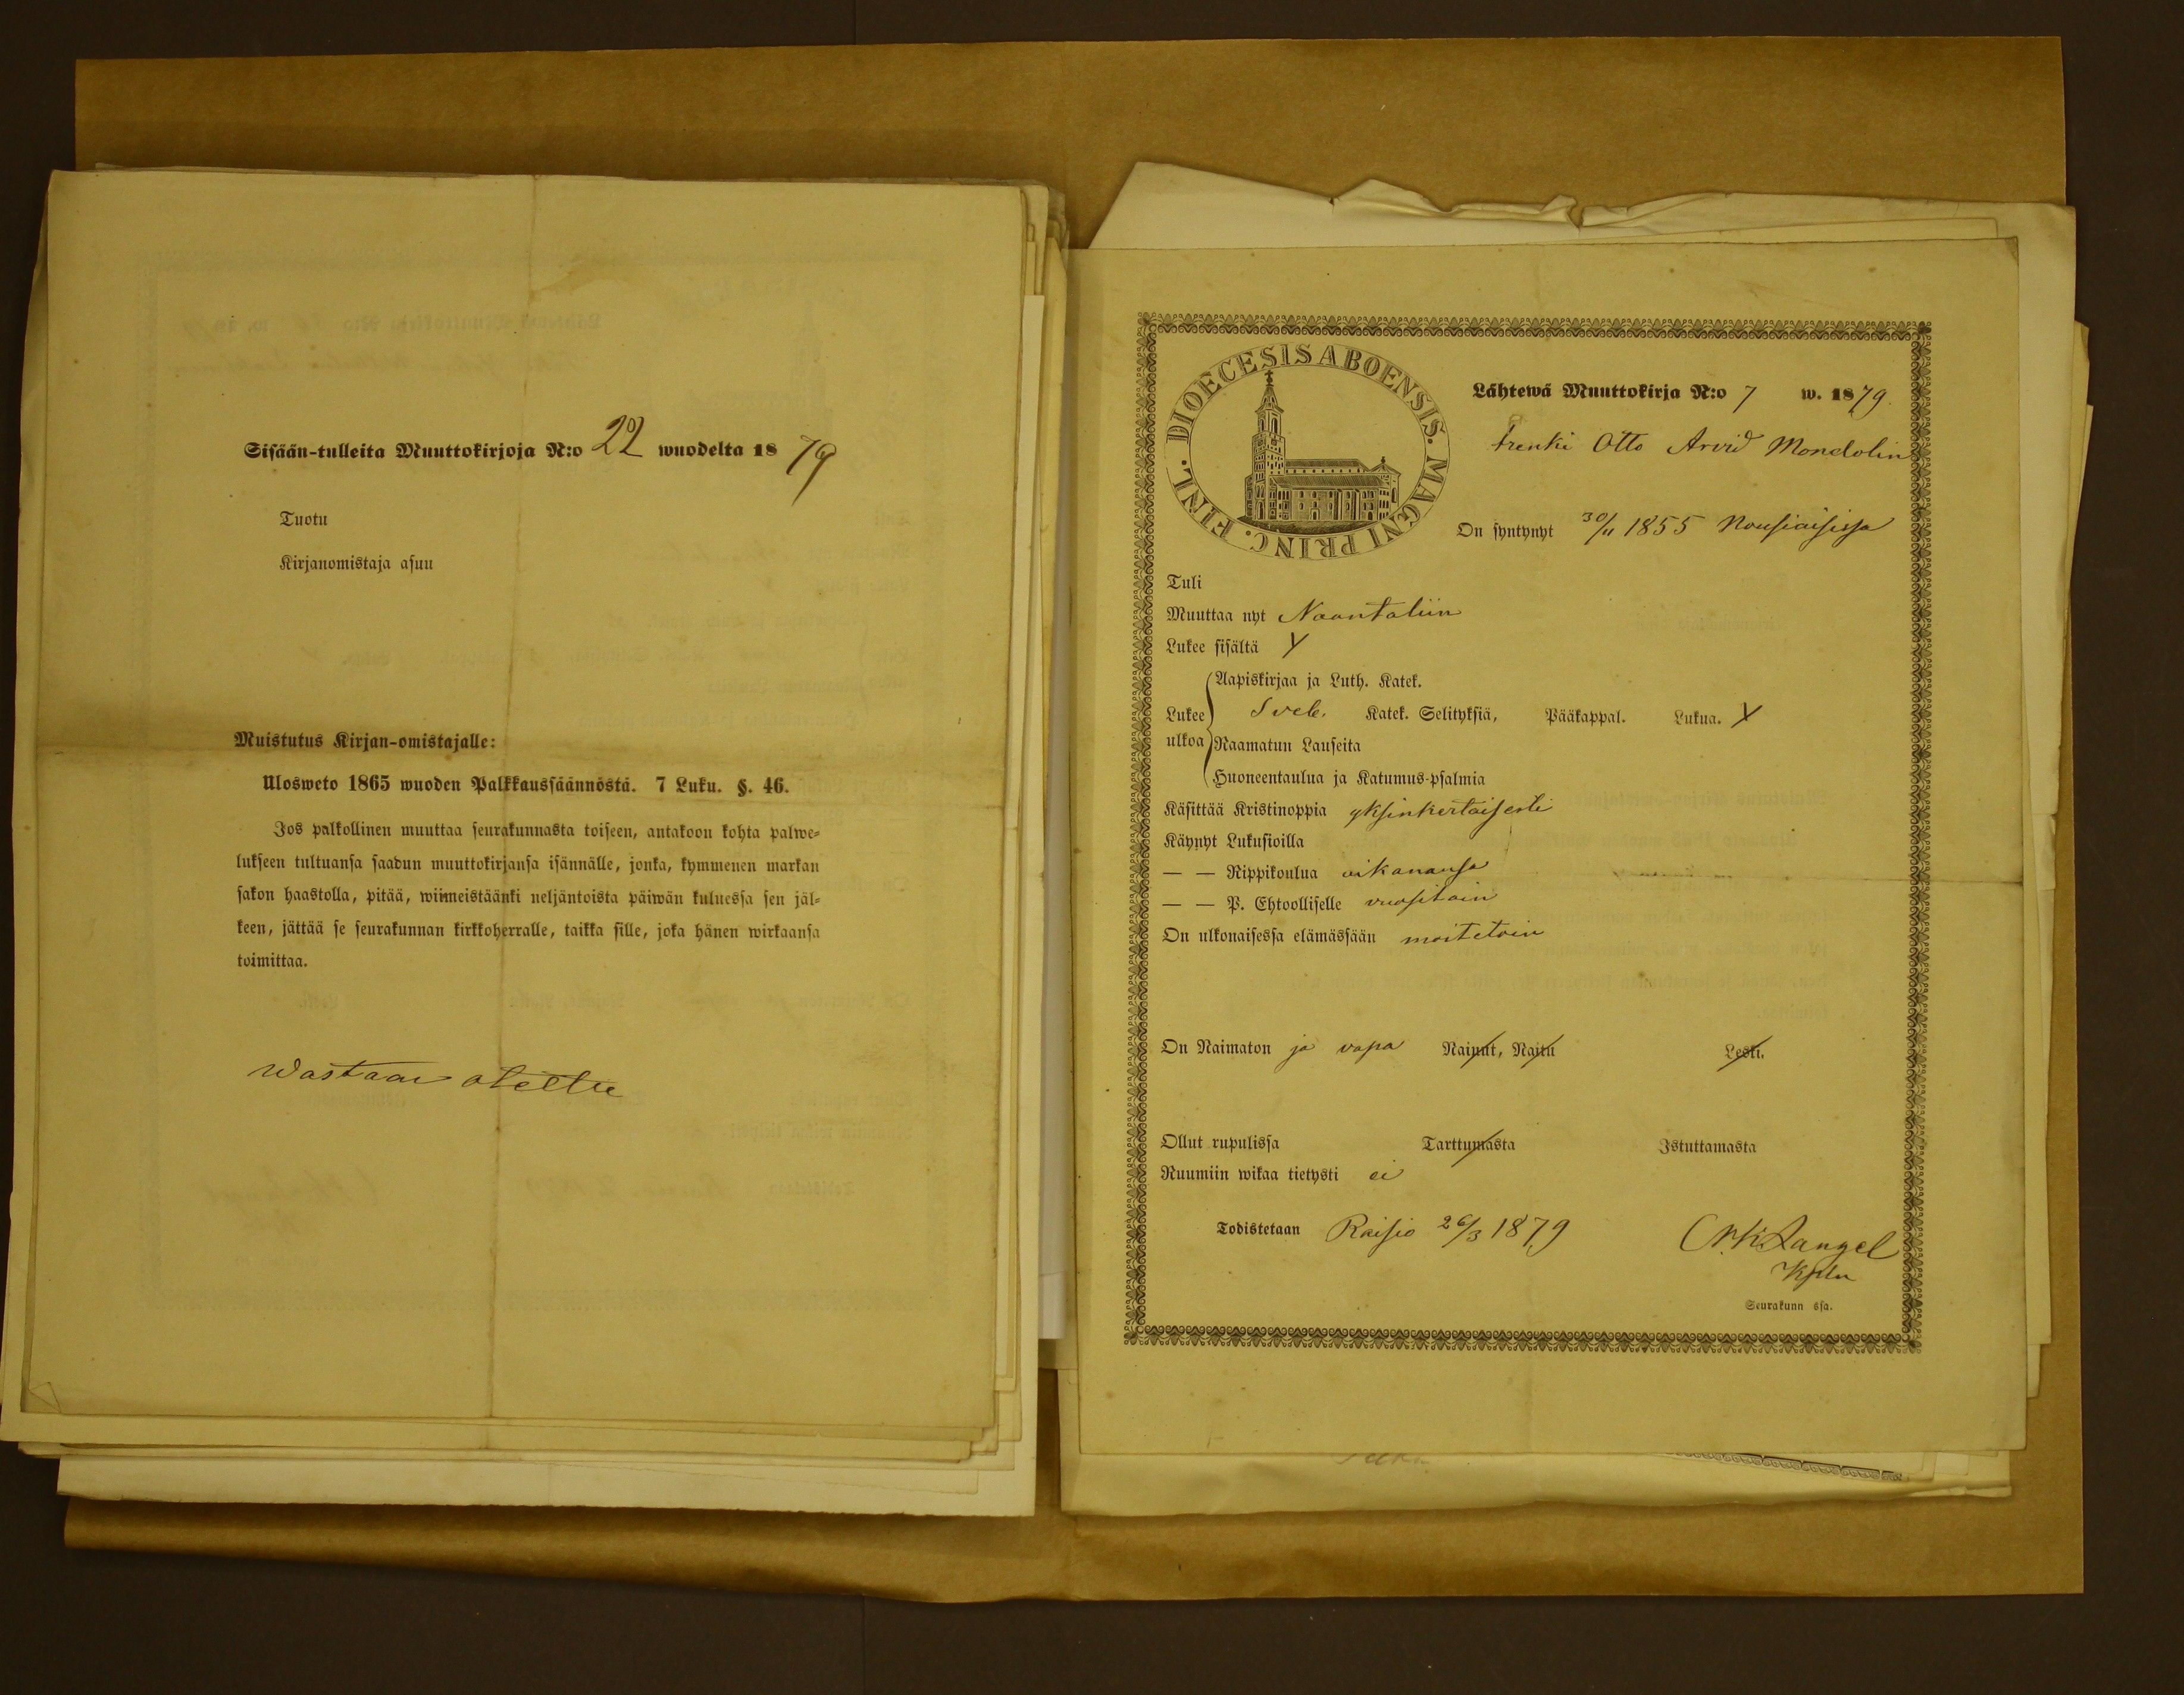 Sisään-tulleita Muuttokirjoja N:o 22 wuodelta 1879
Tuotu
Kirjanomistaja asuu
Muistutus Kirjan-omistajalle:
Ulosweto 1865 wuoden Palkkaussäännöstä. 7 Luku. §. 46.
Jos palkollinen muuttaa seurakunnasta toiseen, antakoon kohta palwe=
lukseen tultuansa saadun muuttokirjansa isännälle, jonka, kymmenen markan
sakon haastolla, pitää, wiimeistäänki neljäntoista päiwän kuluessa sen jäl=
keen, jättää se seurakunnan kirkkoherralle, taikka sille, joka hänen wirkaansa
toimittaa.
Wastaan otettu
DIOECESIS ABOENSIS. MAGNI PRINC. FINL.
Lähtewä Muuttokirja N:o 7 w. 1879.
Trenki Otto Arvid Mondolin
On syntynyt 30/11 1855 Nousiaisissa
Tuli
Muuttaa nyt Naantaliin
Lukee sisältä Y
Aapiskirjaa ja Luth. Katek.
Lukee Sveb. Katek. Selityksiä, Pääkappal. Lukua. Y
ulkoa Raamatun Lauseita
Huoneentaulua ja Katumus-psalmia
Käsittää Kristinoppia yksinkertaisesti
Käynyt Lukusioilla
— — Rippikoulua aikanansa
— — P. Ehtoolliselle vuositain
On ulkonaisessa elämässään moitetoin
On Naimaton ja vapa Nainut, Naitu Leski.
Ollut rupulissa Tarttumasta Istuttamasta
Ruumiin wikaa tietysti ei
Todistetaan Raisio 26/3 1879 Langel
Seurakunn ssa.